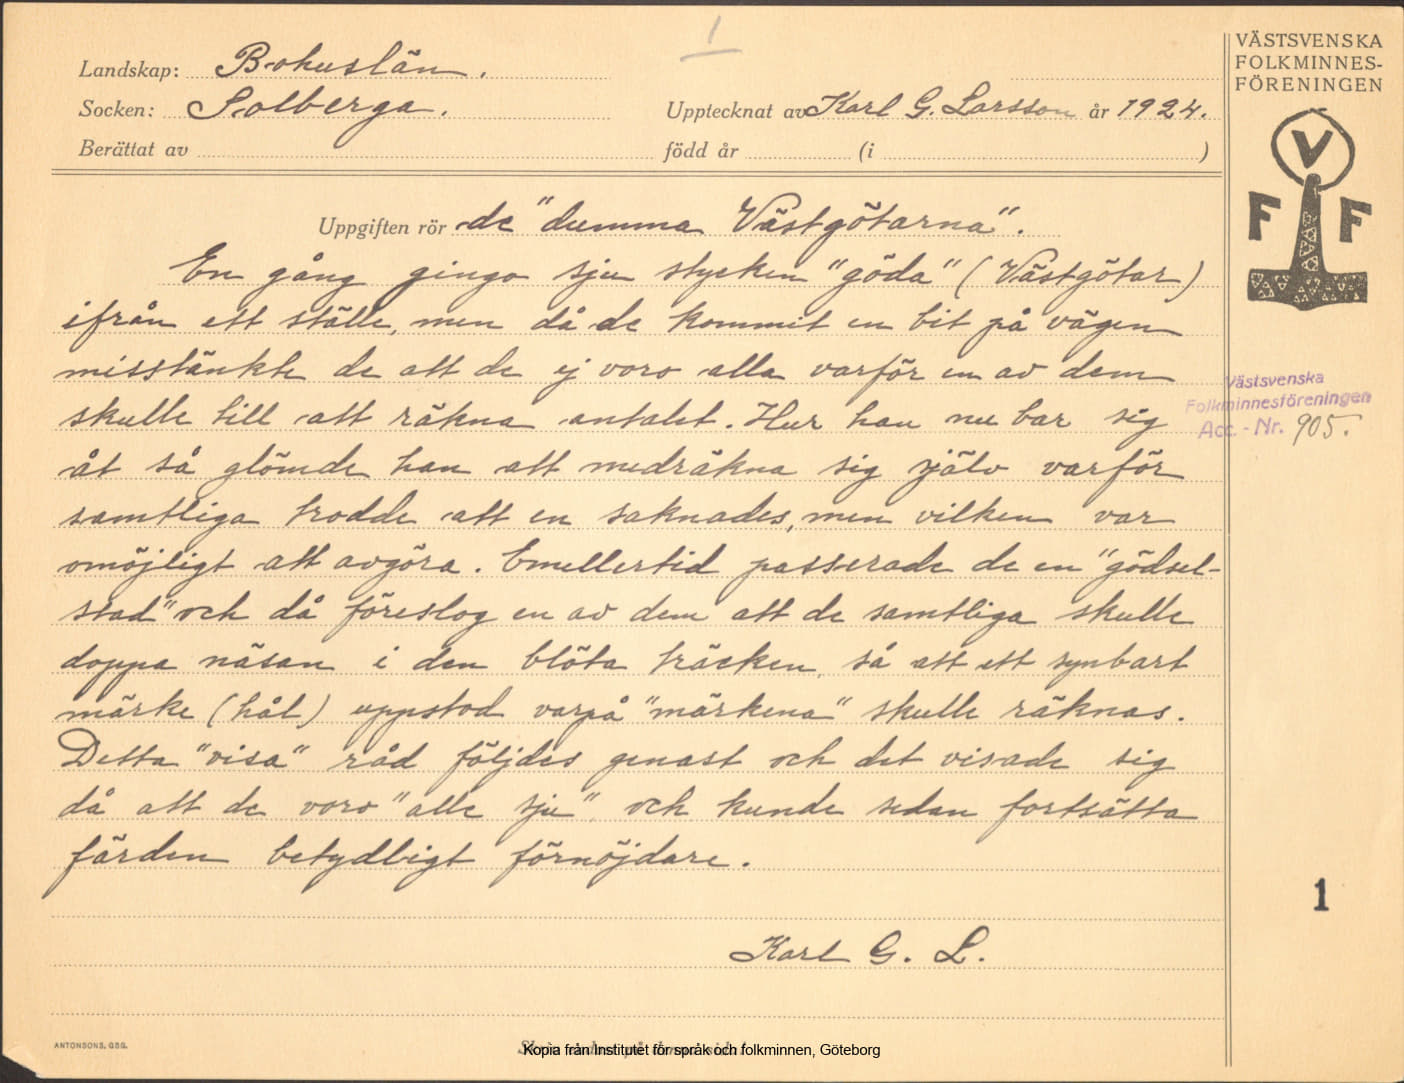 1
Landskap: Bohuslän.
Socken: Solberga.
Upptecknat av Karl G. Larsson år 1924.
Berättat av
född år (i )
VÄSTSVENSKA
FOLKMINNES-
FÖRENINGEN
V
F F
Uppgiften rör de "dumma Västgötarna".
En gång gingo sju stycken "göda" (Västgötar)
ifrån ett ställe, men då de kommit en bit på vägen
misstänkte de att de ej voro alla varför en av dem
skulle till att räkna antalet. Hur han nu bar sig
åt så glömde han att medräkna sig själv varför
samtliga trodde att en saknades, men vilken var
omöjligt att avgöra. Emellertid passerade de en "gödsel-
stad" och då föreslog en av dem att de samtliga skulle
doppa näsan i den blöta träcken, så att ett synbart
märke (hål) uppstod varpå "märkena" skulle räknas.
Detta "visa" råd följdes genast och det visade sig
då att de voro "alle sju", och kunde sedan fortsätta
färden betydligt förnöjdare.
Karl G. L.
Västsvenska
Folkminnesföreningen
Acc. - Nr. 905.
1
ANTONSONS, GBG.
Kopia från Institutet för språk och folkminnen, Göteborg